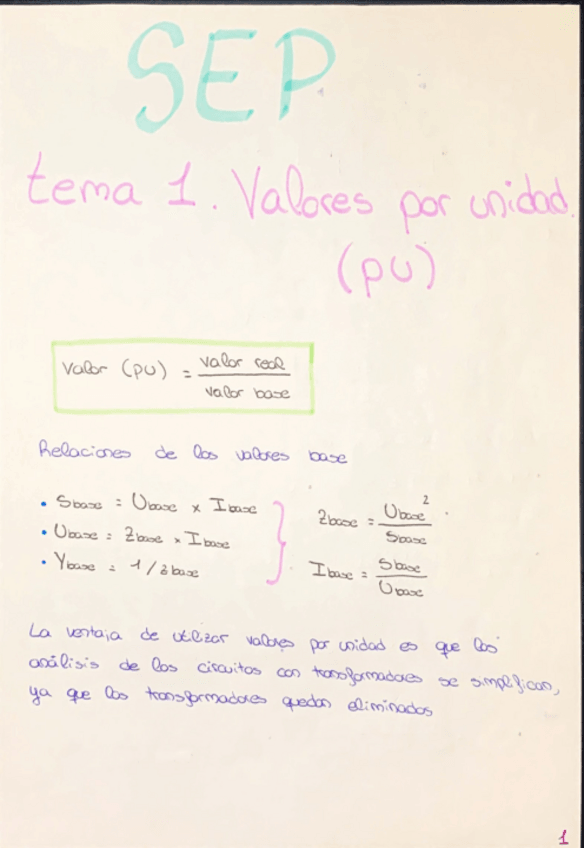 SEP
tema 1. Valores por unidad.
(pu)
Valor (pu) = valor real / valor base
Relaciones de los valores base
• Sbase = Ubase x Ibase
• Ubase = Zbase x Ibase
• Ybase = 1/zbase
Zbase = Ubase² / Sbase
Ibase = Sbase / Ubase
La ventaja de utilizar valores por unidad es que los
análisis de los circuitos con transformadores se simplifican,
ya que los transformadores quedan eliminados
1